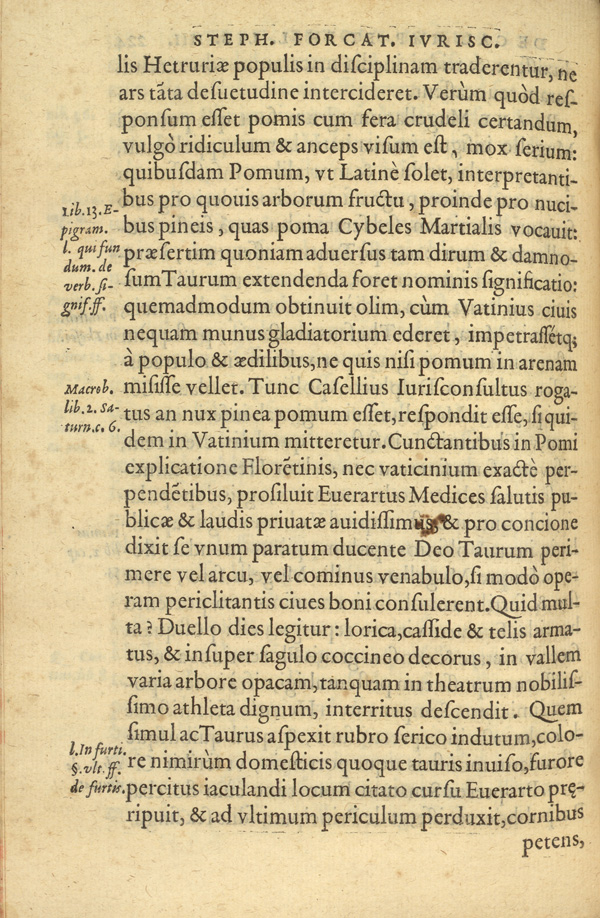 STEPH. FORCAT. IVRISC.
lis Hetruriæ populis in diſciplinam traderentur, ne
ars tāta deſuetudine intercideret. Verùm quòd reſ-
ponſum eſſet pomis cum fera crudeli certandum,
vulgò ridiculum & anceps viſum eſt, mox ſerium:
quibuſdam Pomum, vt Latinè ſolet, interpretanti-
bus pro quouis arborum fructu, proinde pro nuci-
bus pineis, quas poma Cybeles Martialis vocauit:
præſertim quoniam aduerſus tam dirum & damno-
ſum Taurum extendenda foret nominis ſignificatio:
quemadmodum obtinuit olim, cùm Vatinius ciuis
nequam munus gladiatorium ederet, impetraſſétq;
à populo & ædilibus, ne quis niſi pomum in arenam
miſiſſe vellet. Tunc Caſellius Iuriſconſultus roga-
tus an nux pinea pomum eſſet, reſpondit eſſe, ſi qui-
dem in Vatinium mitteretur. Cunctantibus in Pomi
explicatione Florētinis, nec vaticinium exactè per-
pendētibus, proſiluit Euerartus Medices ſalutis pu-
blicæ & laudis priuatæ auidiſſimus, & pro concione
dixit ſe vnum paratum ducente Deo Taurum peri-
mere vel arcu, vel cominus venabulo, ſi modò ope-
ram periclitantis ciues boni conſulerent. Quid mul-
ta? Duello dies legitur: lorica, caſſide & telis arma-
tus, & inſuper ſagulo coccineo decorus, in vallem
varia arbore opacam, tanquam in theatrum nobiliſ-
ſimo athleta dignum, interritus deſcendit. Quem
ſimul ac Taurus aſpexit rubro ſerico indutum, colo-
re nimirùm domeſticis quoque tauris inuiſo, furore
percitus iaculandi locum citato curſu Euerarto prę-
ripuit, & ad vltimum periculum perduxit, cornibus
petens,
Lib. 13. E-
pigram.
l. qui fun
dum. de
verb. ſi-
gnif. ff.
Macrob.
lib. 2. Sa-
turn. c. 6.
l. In furti.
§. vlt. ff.
de furtis.